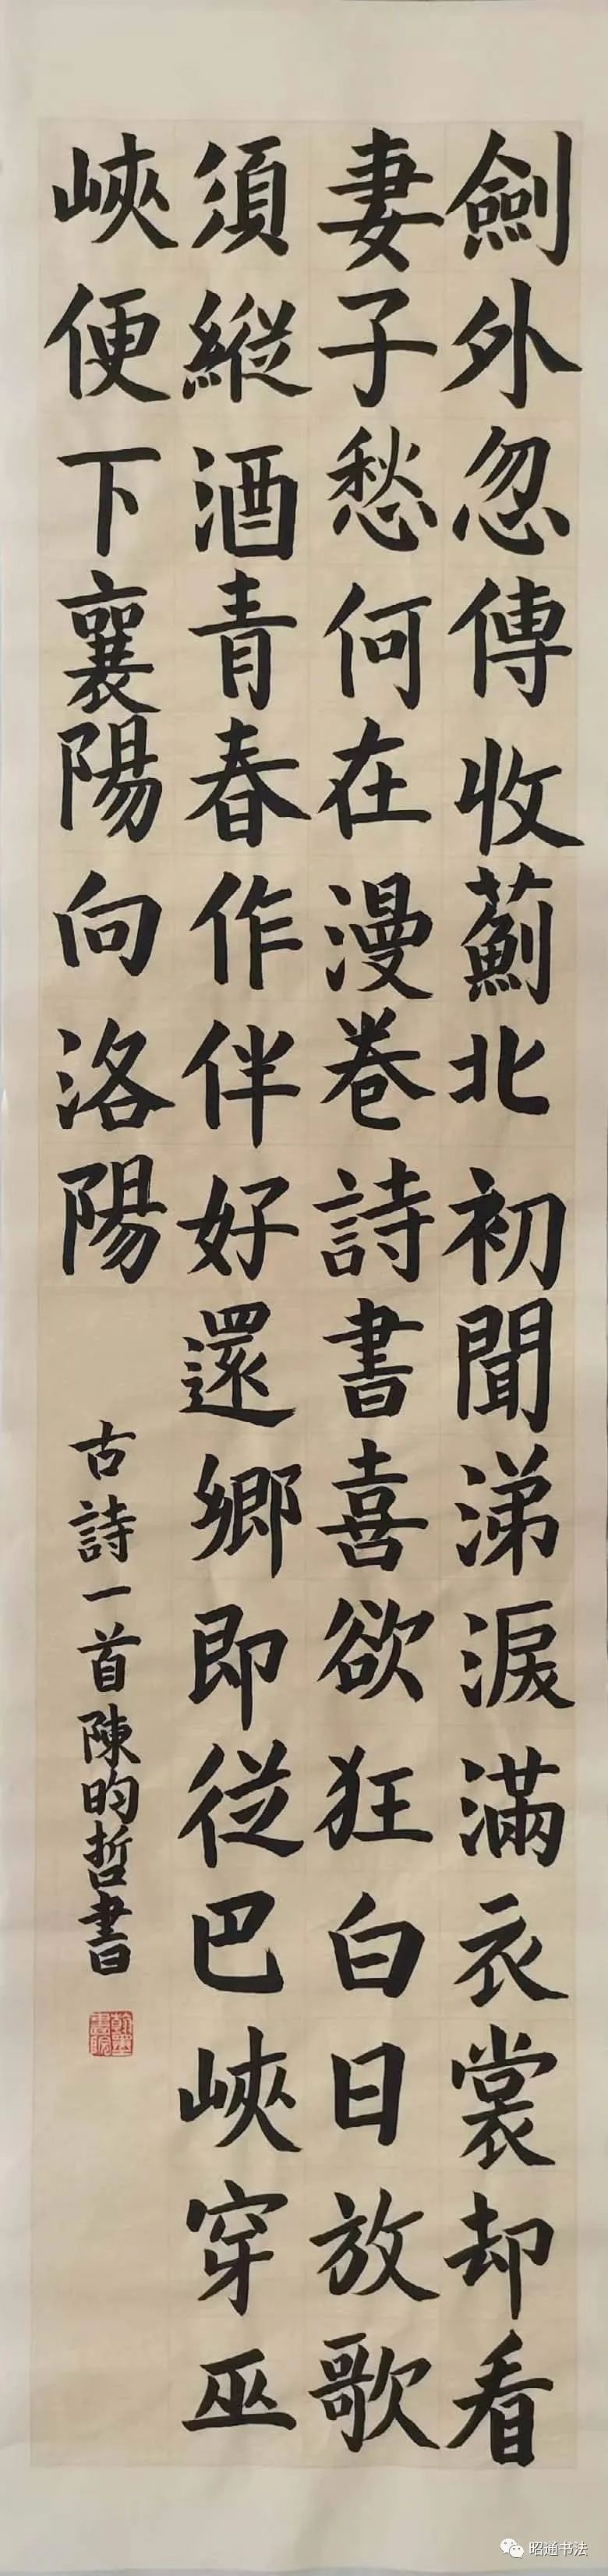 劍外忽傳收薊北初聞涕淚滿衣裳却看
妻子愁何在漫卷詩書喜欲狂白日放歌
須縱酒青春作伴好還鄉即從巴峽穿巫
峽便下襄陽向洛陽
古詩一首陳昀哲書
翰墨書院
昭通书法